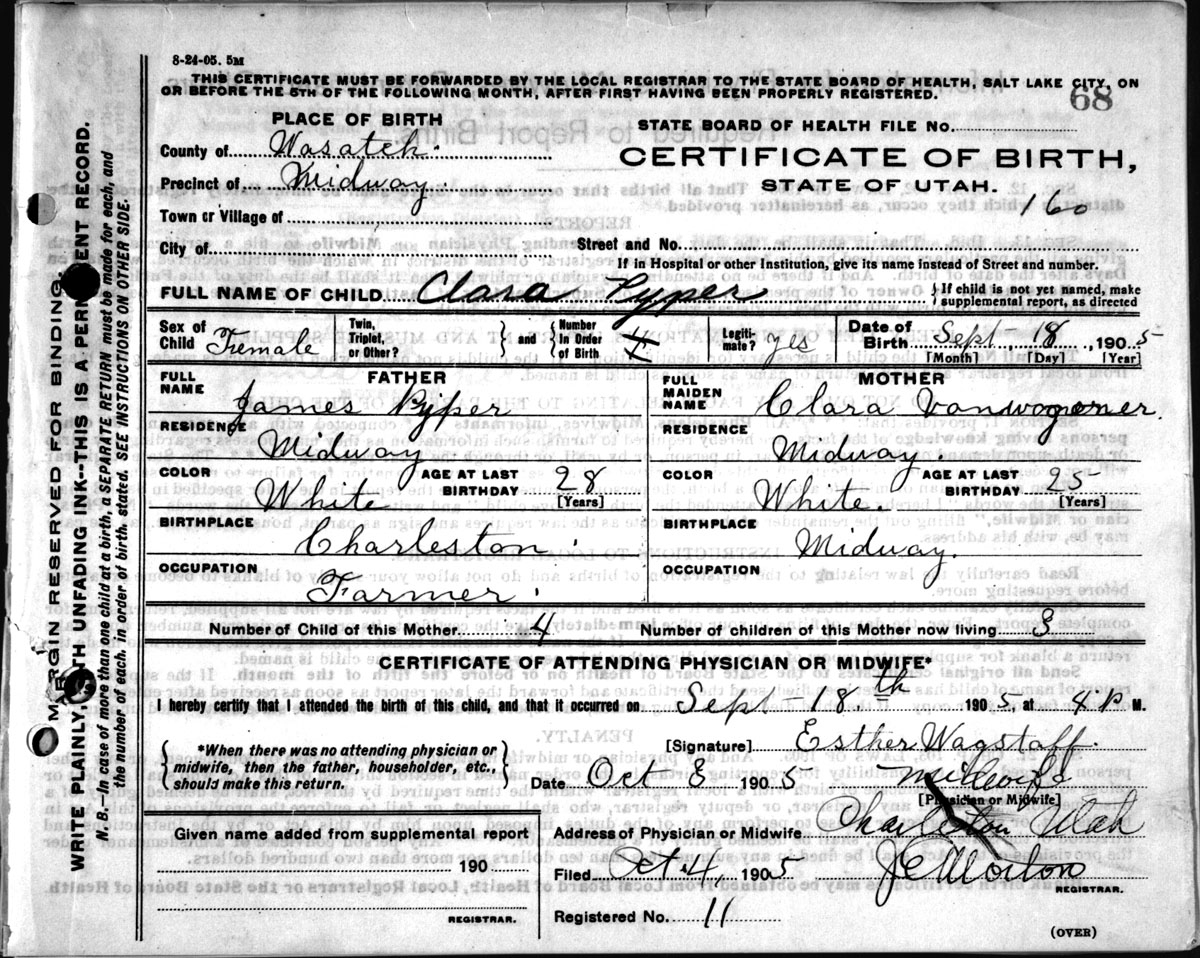 8-24-05. 5M
THIS CERTIFICATE MUST BE FORWARDED BY THE LOCAL REGISTRAR TO THE STATE BOARD OF HEALTH, SALT LAKE CITY, ON
OR BEFORE THE 5TH OF THE FOLLOWING MONTH, AFTER FIRST HAVING BEEN PROPERLY REGISTERED.
68
PLACE OF BIRTH
STATE BOARD OF HEALTH FILE No.
County of Wasatch.
CERTIFICATE OF BIRTH,
Precinct of Midway.
STATE OF UTAH.
Town or Village of
160
City of
Street and No.
If in Hospital or other Institution, give its name instead of Street and number.
FULL NAME OF CHILD Clara Pyper
{If child is not yet named, make
supplemental report, as directed
Sex of Child Female
Twin, Triplet, or Other?
} and {
Number In Order of Birth 4
Legiti-mate? yes
Date of Birth Sept 18, 1905
[Month] [Day] [Year]
FATHER
FULL NAME James Pyper
RESIDENCE Midway
COLOR White
AGE AT LAST BIRTHDAY 28 [Years]
BIRTHPLACE Charleston.
OCCUPATION Farmer.
MOTHER
FULL MAIDEN NAME Clara Vanwagoner.
RESIDENCE Midway.
COLOR White.
AGE AT LAST BIRTHDAY 25 [Years]
BIRTHPLACE Midway.
OCCUPATION
Number of Child of this Mother 4
Number of children of this Mother now living 3
CERTIFICATE OF ATTENDING PHYSICIAN OR MIDWIFE*
I hereby certify that I attended the birth of this child, and that it occurred on Sept 18th 1905, at 4 P M.
{*When there was no attending physician or
midwife, then the father, householder, etc.,
should make this return.}
[Signature] Esther Wagstaff.
Date Oct 3 1905 midwife
[Physician or Midwife]
Given name added from supplemental report
190
REGISTRAR.
Address of Physician or Midwife Charleston Utah
Filed Oct. 4, 1905
REGISTRAR.
Registered No. 11
(OVER)
MARGIN RESERVED FOR BINDING.
WRITE PLAINLY, WITH UNFADING INK--THIS IS A PERMANENT RECORD.
N. B.--In case of more than one child at a birth, a SEPARATE RETURN must be made for each, and
the number of each, in order of birth, stated. SEE INSTRUCTIONS ON OTHER SIDE.